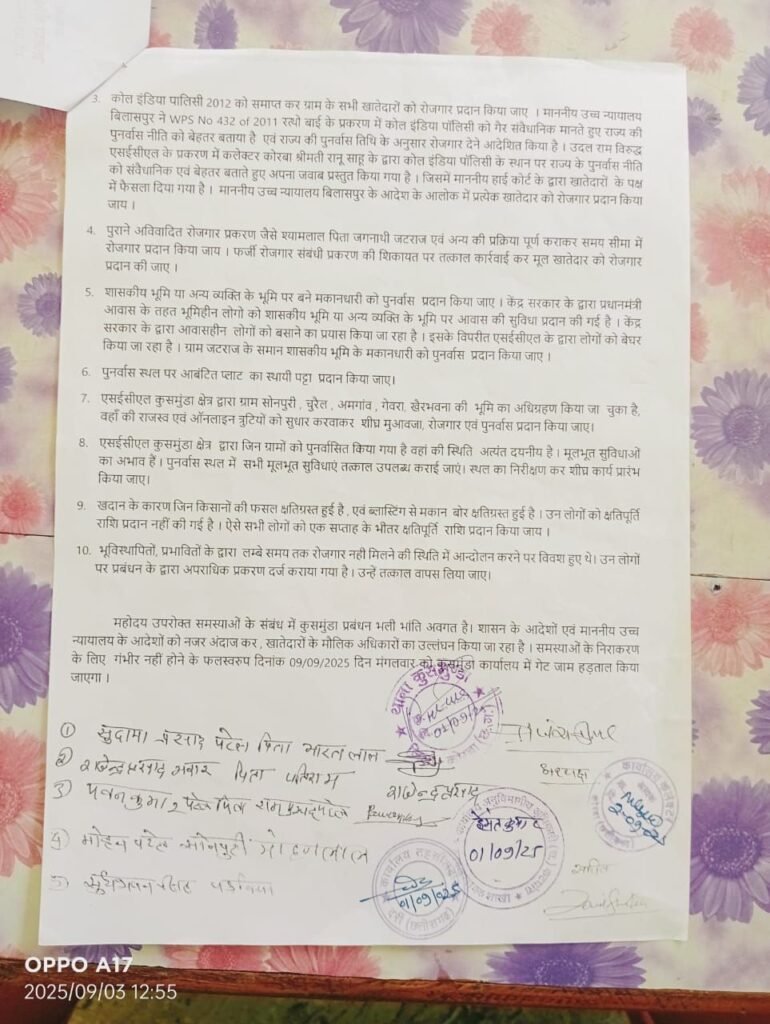 3. कोल इंडिया पालिसी 2012 को समाप्त कर ग्राम के सभी खातेदारों को रोजगार प्रदान किया जाए । माननीय उच्च न्यायालय
बिलासपुर ने WPS No 432 of 2011 रत्थो बाई के प्रकरण में कोल इंडिया पॉलिसी को गैर संवैधानिक मानते हुए राज्य की
पुनर्वास नीति को बेहतर बताया है एवं राज्य की पुनर्वास तिथि के अनुसार रोजगार देने आदेशित किया है । उदल राम विरुद्ध
एसईसीएल के प्रकरण में कलेक्टर कोरबा श्रीमती रानू साहू के द्वारा कोल इंडिया पॉलिसी के स्थान पर राज्य के पुनर्वास नीति
को संवैधानिक एवं बेहतर बताते हुए अपना जवाब प्रस्तुत किया गया है । जिसमें माननीय हाई कोर्ट के द्वारा खातेदारों के पक्ष
में फैसला दिया गया है । माननीय उच्च न्यायालय बिलासपुर के आदेश के आलोक में प्रत्येक खातेदार को रोजगार प्रदान किया
जाय ।
4. पुराने अविवादित रोजगार प्रकरण जैसे श्यामलाल पिता जगनाथी जटराज एवं अन्य की प्रक्रिया पूर्ण कराकर समय सीमा में
रोजगार प्रदान किया जाय । फर्जी रोजगार संबंधी प्रकरण की शिकायत पर तत्काल कार्रवाई कर मूल खातेदार को रोजगार
प्रदान की जाए ।
5. शासकीय भूमि या अन्य व्यक्ति के भूमि पर बने मकानधारी को पुनर्वास प्रदान किया जाए । केंद्र सरकार के द्वारा प्रधानमंत्री
आवास के तहत भूमिहीन लोगों को शासकीय भूमि या अन्य व्यक्ति के भूमि पर आवास की सुविधा प्रदान की गई है । केंद्र
सरकार के द्वारा आवासहीन लोगों को बसाने का प्रयास किया जा रहा है । इसके विपरीत एसईसीएल के द्वारा लोगों को बेघर
किया जा रहा है । ग्राम जटराज के समान शासकीय भूमि के मकानधारी को पुनर्वास प्रदान किया जाए ।
6. पुनर्वास स्थल पर आबंटित प्लाट का स्थायी पट्टा प्रदान किया जाए।
7. एसईसीएल कुसमुंडा क्षेत्र द्वारा ग्राम सोनपुरी , चुरैल , अमगांव , गेवरा, खैरभवना की भूमि का अधिग्रहण किया जा चुका है,
वहाँ की राजस्व एवं ऑनलाइन त्रुटियों को सुधार करवाकर शीघ्र मुआवजा, रोजगार एवं पुनर्वास प्रदान किया जाए।
8. एसईसीएल कुसमुंडा क्षेत्र द्वारा जिन ग्रामों को पुनर्वासित किया गया है वहां की स्थिति अत्यंत दयनीय है । मूलभूत सुविधाओं
का अभाव हैं । पुनर्वास स्थल में सभी मूलभूत सुविधाएं तत्काल उपलब्ध कराई जाएं। स्थल का निरीक्षण कर शीघ्र कार्य प्रारंभ
किया जाए।
9. खदान के कारण जिन किसानों की फसल क्षतिग्रस्त हुई है , एवं ब्लास्टिंग से मकान बोर क्षतिग्रस्त हुई है । उन लोगों को क्षतिपूर्ति
राशि प्रदान नहीं की गई है । ऐसे सभी लोगों को एक सप्ताह के भीतर क्षतिपूर्ति राशि प्रदान किया जाय ।
10. भूविस्थापितों, प्रभावितों के द्वारा लम्बे समय तक रोजगार नही मिलने की स्थिति में आन्दोलन करने पर विवश हुए थे। उन लोगों
पर प्रबंधन के द्वारा अपराधिक प्रकरण दर्ज कराया गया है। उन्हें तत्काल वापस लिया जाए।
महोदय उपरोक्त समस्याओं के संबंध में कुसमुंडा प्रबंधन भली भांति अवगत है। शासन के आदेशों एवं माननीय उच्च
न्यायालय के आदेशों को नजर अंदाज कर , खातेदारों के मौलिक अधिकारों का उल्लंघन किया जा रहा है । समस्याओं के निराकरण
के लिए गंभीर नहीं होने के फलस्वरुप दिनांक 09/09/2025 दिन मंगलवार को कुसमुंडा कार्यालय में गेट जाम हड़ताल किया
जाएगा ।
थाना कुसमुण्डा
01/09/25
① सुदामा प्रसाद पटेल पिता भारत लाल
अध्यक्ष
② राजेन्द्र प्रसाद पिता
राजेन्द्र प्रसाद
③ पवन कुमार पटेल पिता
④ मोहन पटेल सोनपुरी मोहनलाल
कार्यालय कलेक्टर
2-09-25
हेमंत कुमार
01/09/25
कार्यालय तहसीलदार
01/09/025
दर्री (छत्तीसगढ़)
सचिव
OPPO A17
2025/09/03 12:55